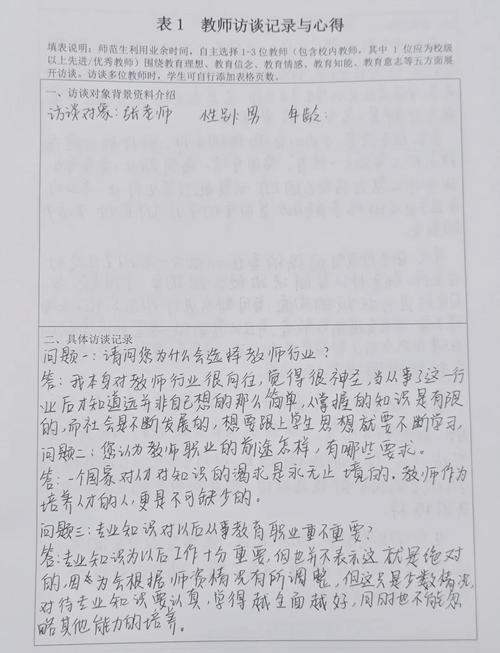 表1 教师访谈记录与心得
填表说明：师范生利用业余时间，自主选择1-3位教师（包含校内教师，其中 1 位应为校级
以上先进/优秀教师）围绕教育理想、教育信念、教育情感、教育知能、教育意志等五方面展
开访谈。访谈多位教师时，学生可自行添加表格页数。
一、访谈对象背景资料介绍
访谈对象：张老师 性别：男 年龄：
二、具体访谈记录
问题一：请问您为什么会选择教师行业？
答：我本身对教师行业很向往，觉得很神圣，当从事了这一行
业后才知道远并非自己想的那么简单，人掌握的知识是有限
的，而社会是不断发展的，想要跟上学生思想就要不断学习。
问题二：您认为教师职业的前途怎样，有哪些要求。
答：一个国家对人才对知识的渴求是永无止境的。教师作为
培养人才的人，更是不可缺少的。
问题三：专业知识对以后从事教育职业重不重要？
答：专业知识为以后工作十分重要，但也并不表示这就是绝对
的，因为会根据师资情况有所调整，但这只是少数情况，
对待专业知识要认真，学得越全面越好，同时也不能忽
略其他能力的培养。